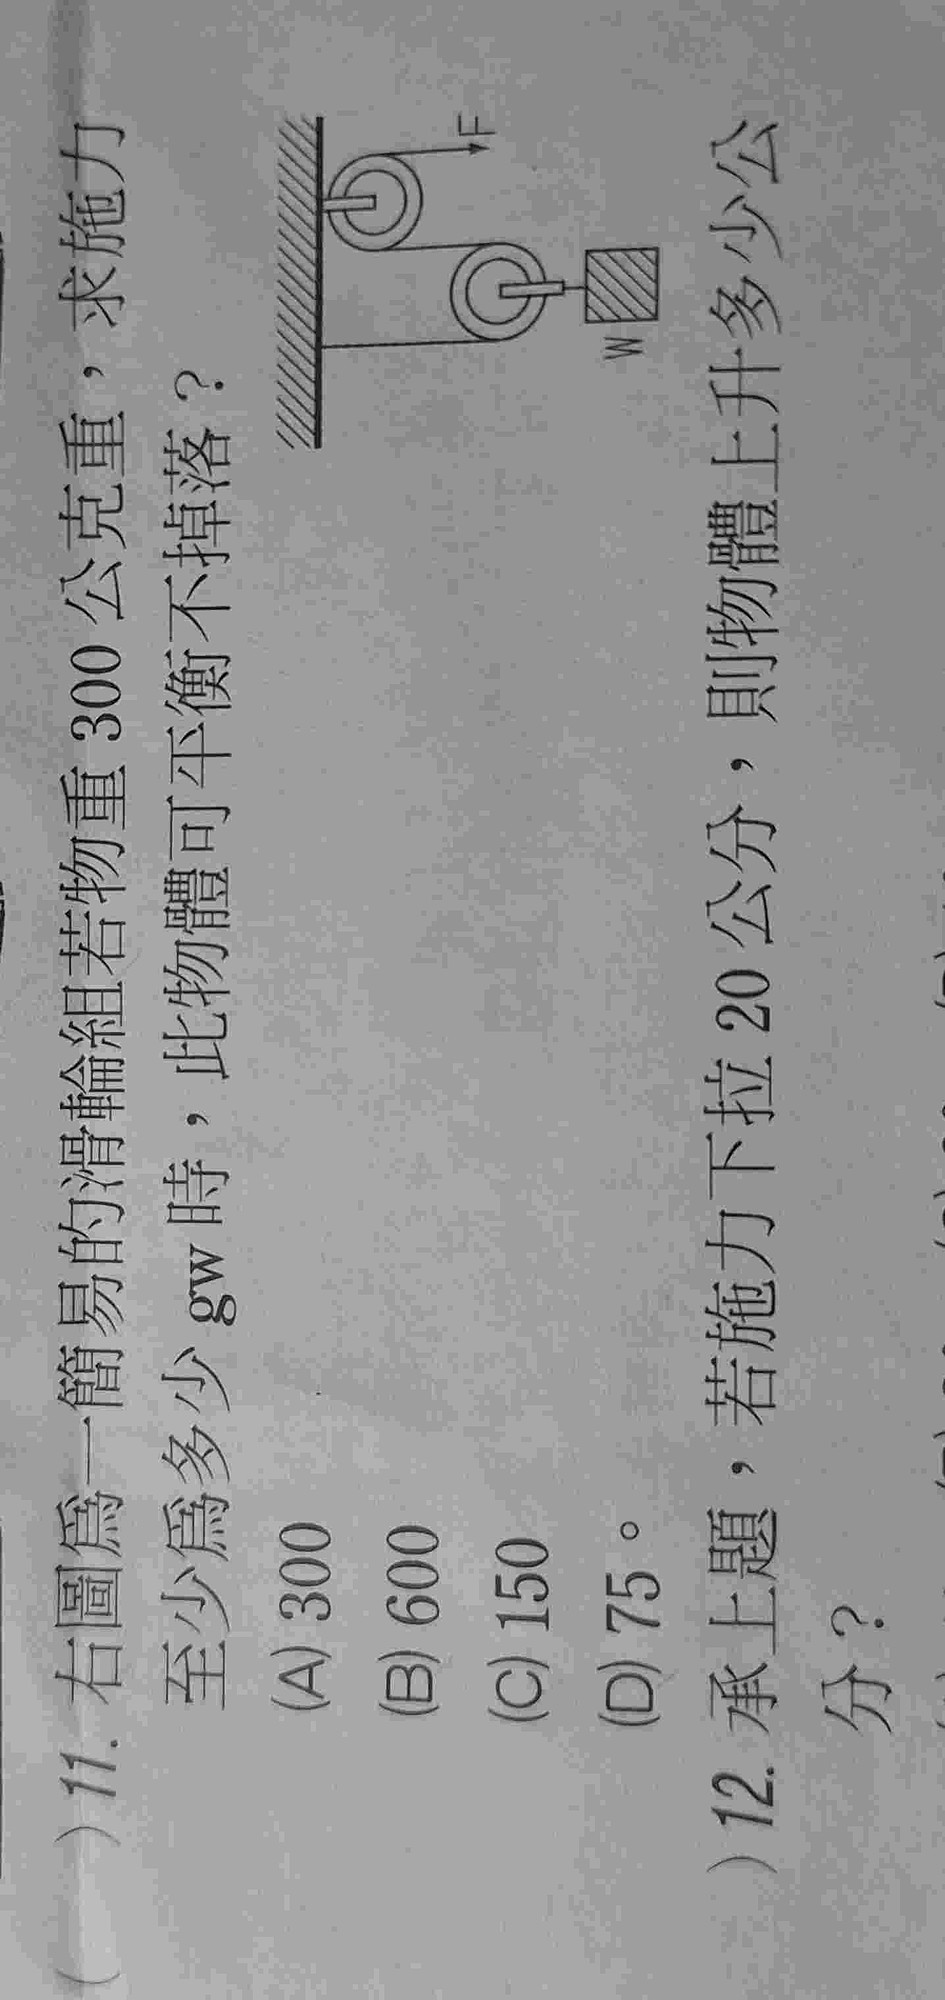 ( ) 11. 右圖為一簡易的滑輪組若物重 300 公克重，求施力
至少為多少 gw 時，此物體可平衡不掉落？
(A) 300
(B) 600
(C) 150
(D) 75。
F
W
) 12. 承上題，若施力下拉 20 公分，則物體上升多少公
分？